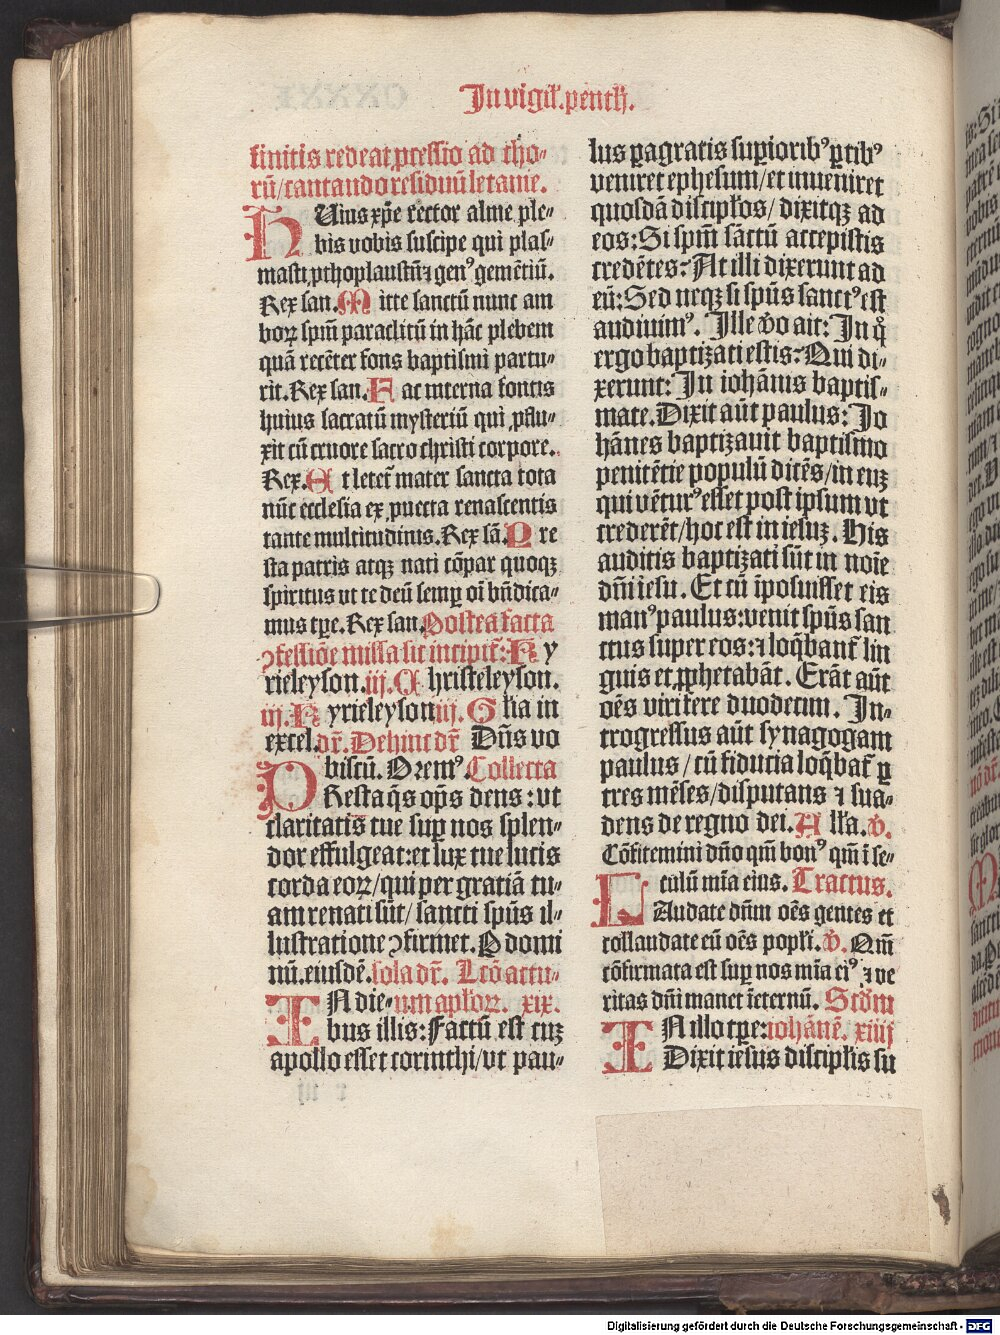 In vigil'. pentħ.
finitis redeat ꝓcessio ad cho⸗
rū/cantando residuū letanie.
HUius xp̄e rector alme ple⸗
bis vobis suscipe qui plas⸗
masti ꝓthoplaustū ⁊ genꝰ gemētiū.
Rex san. Mitte sanctū nunc am
borꝝ spm̄ paraclitū in hāc plebem
quā recēter fons baptismi partu⸗
rit. Rex san. Fac interna fontis
huius sacratū mysteriū qui ꝓflu⸗
xit cū cruore sacro christi corpore.
Rex. Et letet̄ mater sancta tota
nūc ecclesia ex ꝓuecta renascentis
tante multitudinis. Rex sā. Pre
sta patris atqꝫ nati cōpar quoqꝫ
spiritus ut te deū semꝑ oī bn̄dica⸗
mus tꝑe. Rex san. Postea facta
ꝯfessiōe missa sic incipit̄: Ky
rieleyson. iij. Christeleyson.
iij. Kyrieleyson iij. Gl'ia in
excel. dr̄. Dehinc dr̄ Dn̄s vo
biscū. Oremꝰ. Collecta
PResta q̄s op̄s deus: vt
claritatis tue suꝑ nos splen⸗
dor effulgeat: et lux tue lucis
corda eorꝝ/qui per gratiā tu⸗
am renati sūt/sancti spūs il⸗
lustratione ꝯfirmet. P domi
nū. eiusdē. sola dr̄. Lcō actu⸗
IN die⸗ um apl'orꝝ. xix.
bus illis: Factū est cuꝫ
apollo esset corinthi/vt pau⸗
lus ꝑagratis suꝑioribꝰ ꝑtibꝰ
veniret ephesum/et inueniret
quosdā discipl'os/dixitqꝫ ad
eos: Si spm̄ sāctū accepistis
credētes: At illi dixerunt ad
eū: Sed neqꝫ si spūs sanctꝰ est
audiuimꝰ. Ille v̊o ait: In q̊
ergo baptizati estis: Qui di⸗
xerunt: In iohānis baptis⸗
mate. Dixit aūt paulus: Jo
hānes baptizauit baptismo
penitētie populū dicēs/in euꝫ
qui vēturꝰ esset post ipsum vt
crederēt/hoc est in iesuꝫ. His
auditis baptizati sūt in noīe
dn̄i iesu. Et cū īposuisset eis
manꝰ paulus: venit spūs san
ctus super eos: ⁊ loq̄bant̄ lin
guis et ꝓphetabāt. Erāt aūt
oēs viri fere duodecim. In⸗
trogressus aūt synagogam
paulus/cū fiducia loq̄bat̄ ꝑ
tres mēses/disputans ⁊ sua⸗
dens de regno dei. All'a. v̊.
Cōfitemini dn̄o qm̄ bonꝰ qm̄ ī se⸗
culū mīa eius. Tractus.
LAudate dn̄m oēs gentes et
collaudate eū oēs popl'i. v̊. Qm̄
cōfirmata est suꝑ nos mīa eiꝰ ⁊ ve
ritas dn̄i manet īeternū. Scd̄m
IN illo tꝑe: iohānē. xiiij
Dixit iesus discipl'is su
Digitalisierung gefördert durch die Deutsche Forschungsgemeinschaft - DFG